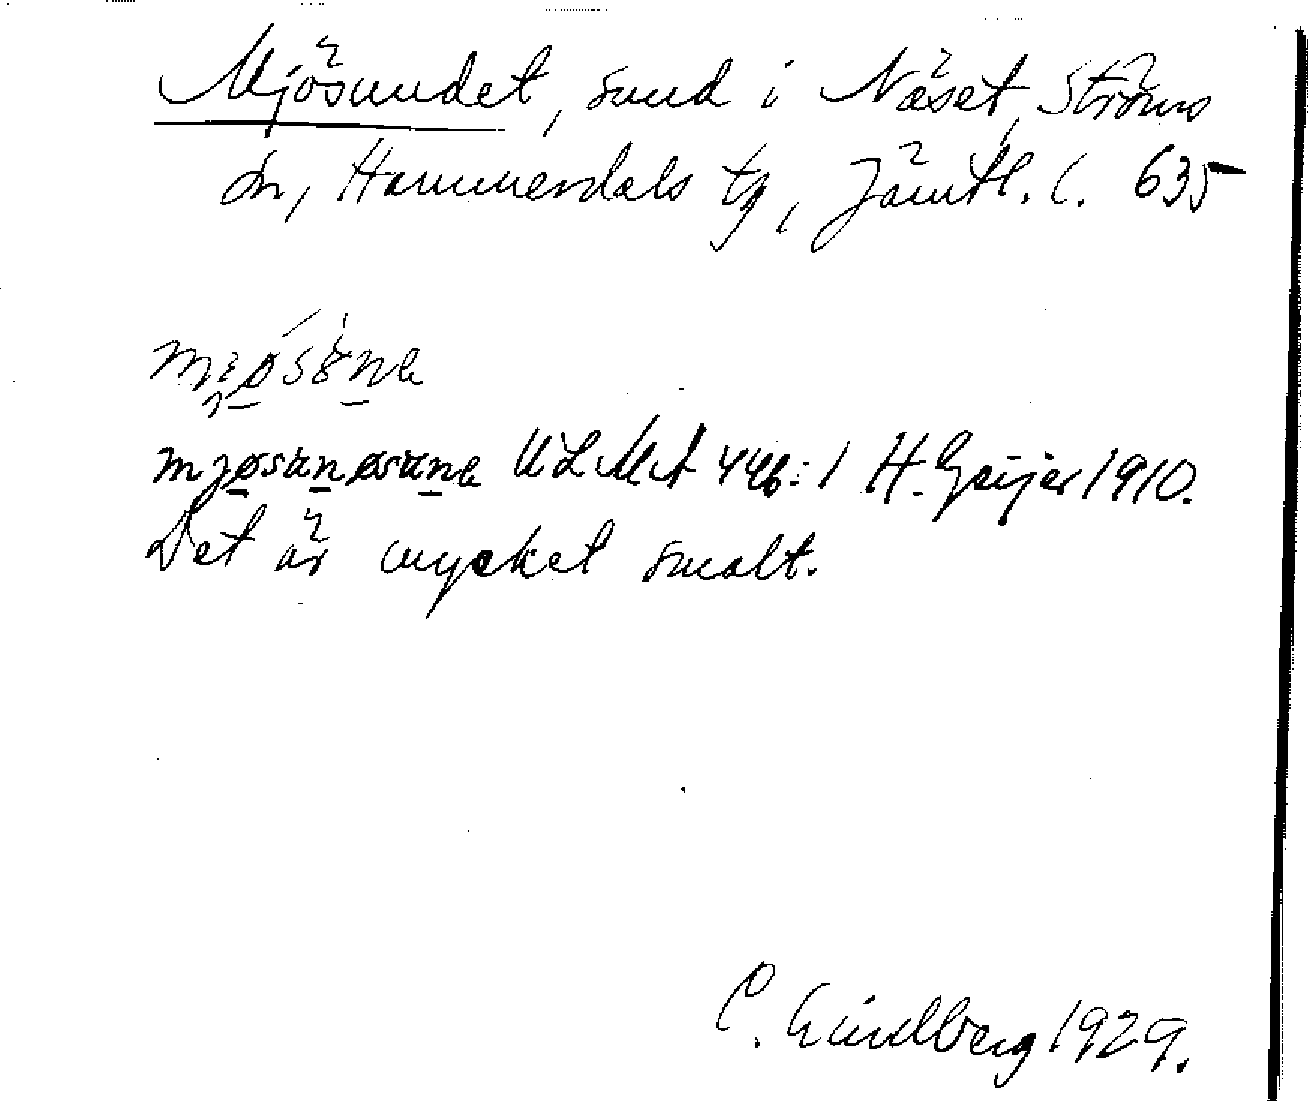 Mjösundet, sund i Näset, Ströms
sn, Hammerdals tg, Jämtl. l. 635
mjøsunɐ
mjøsun øsunɐ ULMA 446:1 H. Geijer 1910.
Det är mycket smalt.
C. Lindberg 1929.